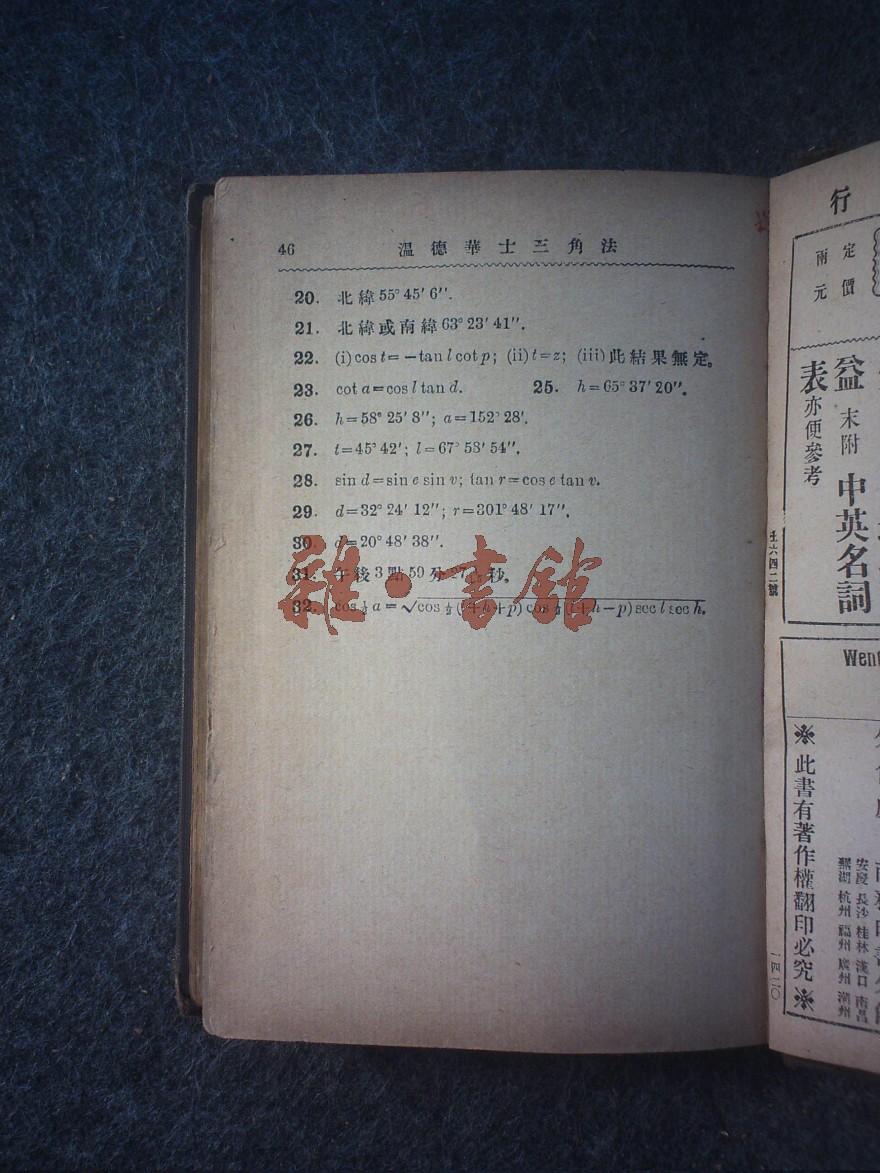 46 溫德華士三角法
20. 北緯 55° 45′ 6″.
21. 北緯或南緯 63° 23′ 41″.
22. (i) cos t = −tan l cot p; (ii) t = z; (iii) 此結果無定。
23. cot a = cos l tan d. 25. h = 65° 37′ 20″.
26. h = 58° 25′ 8″; a = 152° 28′.
27. t = 45° 42′; l = 67° 58′ 54″.
28. sin d = sin e sin v; tan r = cos e tan v.
29. d = 32° 24′ 12″; r = 301° 48′ 17″.
30. d = 20° 48′ 38″.
31. 午後 3 點 59 分 秒。
32. cos ½ a = √cos ½ (l + h + p) cos ½ (l + h − p) sec l sec h.
雜·書館
行
定價
兩元
益
表亦便參考
末附 中英名詞
此書有著作權翻印必究
安慶 長沙 桂林 漢口 南昌
蕪湖 杭州 福州 廣州 潮州
一四二〇